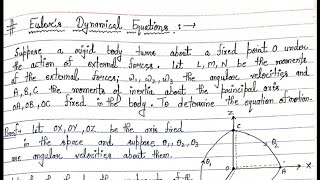 # Euler's Dynamical Equations :→
Suppose a rigid body turns about a fixed point O under
the action of external forces. Let L, M, N be the moments
of the external forces; ω₁, ω₂, ω₃ the angular velocities and
A, B, C the moments of inertia about the principal axis
OA, OB, OC fixed in the body. To determine the equation of motion.
Proof:- Let OX, OY, OZ be the axis fixed
in the space and suppose θ₁, θ₂, θ₃
are angular velocities about them.
Z
C
θ₁
θ₂
O
A